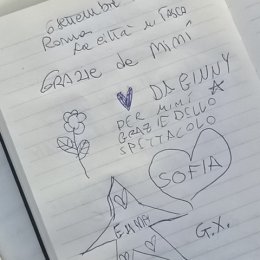 6 settembre
Roma
La città in tasca
GRAZIE de mimí
DA GINNY
PER MIMÍ
GRAZIE DELLO
SPETTACOLO
SOFIA
EMMA
G.X.